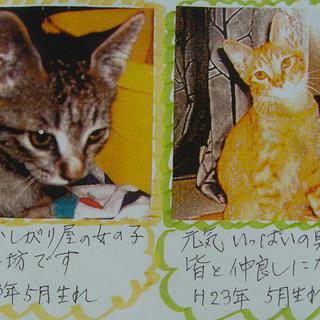 しがり屋の女の子
坊です
3年5月生れ
元気いっぱいの男
皆と仲良しにな
H23年 5月生れ